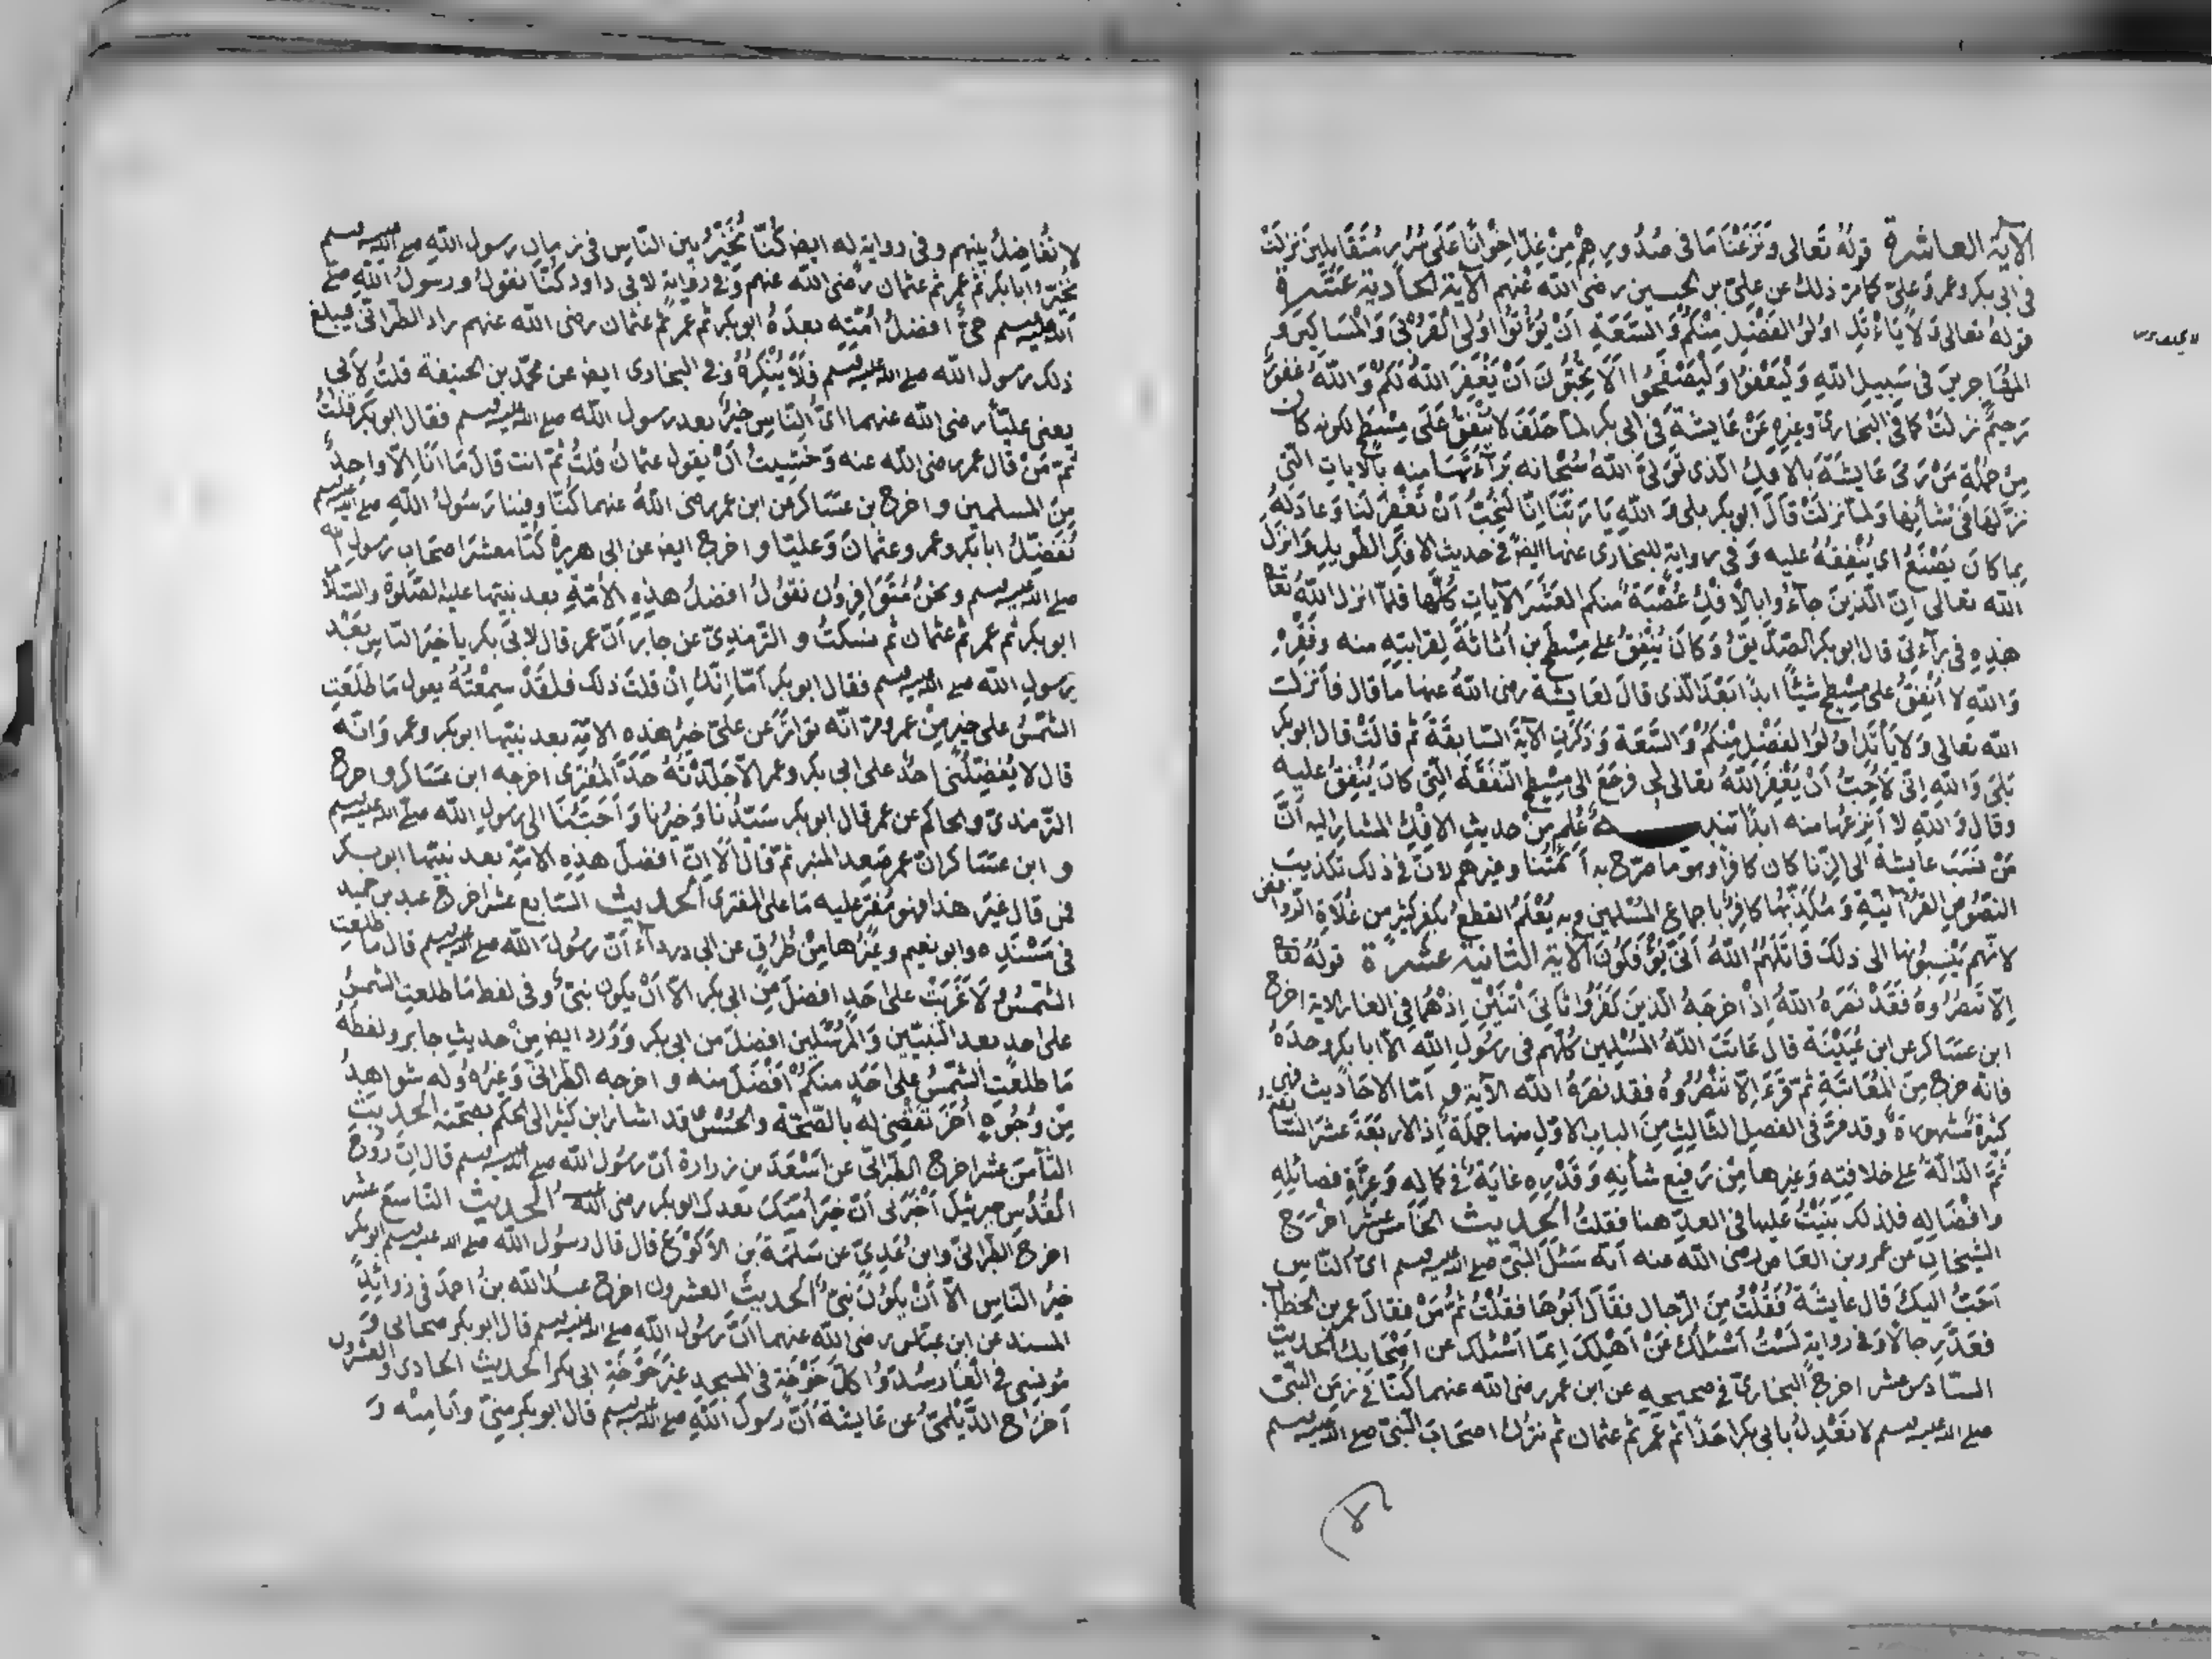 الآية العاشرة قوله تعالى ونزعنا ما في صدورهم من غل اخوانا على سرر متقابلين نزلت
في ابي بكر وعمر وعلي كما مر ذلك عن علي بن الحسين رضي الله عنهم الآية الحادية عشرة
قوله تعالى ولا يأتل اولوا الفضل منكم والسعة ان يؤتوا اولى القربى والمساكين و
المهاجرين في سبيل الله وليعفوا وليصفحوا الا تحبون ان يغفر الله لكم والله غفور
رحيم نزلت كما في البخاري وغيره عن عايشة في ابي بكر لما حلف لا ينفق على مسطح لكونه كان
من جملة من رمى عايشة بالافك الذي تولى الله سبحانه برآءتها منه بالآيات التي
نزلها في شأنها ولما نزلت قال ابو بكر بلى والله يا ربنا انا لنحب ان تغفر لنا وعاد له
بما كان يصنع اي ينفقه عليه وفي رواية للبخارى عنها ايض في حديث الافك الطويل وانزل
الله تعالى ان الذين جاءوا بالافك عصبة منكم العشر الآيات كلها فلما انزل الله تعا
هذه في برآءتي قال ابو بكر الصديق وكان ينفق على مسطح بن اثاثة لقرابته منه وفقره
والله لا انفق على مسطح شيئا ابدا بعد الذي قال لعايشة رضي الله عنها ما قال فانزلت
الله تعالى ولا يأتل اولوا الفضل منكم والسعة وذكرت الآية السابقة ثم قالت قال ابو بكر
بلى والله اني لاحب ان يغفر الله تعالى لي فرجع الى مسطح النفقة التي كان ينفق عليه
وقال والله لا انزعها منه ابدا تنبيه علم من حديث الافك المشار اليه ان
من نسب عايشة الى الزنا كان كافرا وهو ما صرح به ائمتنا وغيرهم لان في ذلك تكذيب
النصوص القرآنية ومكذبها كافر باجماع المسلمين وبه يعلم القطع بكفر كثير من غلاة الروافض
لانهم ينسبونها الى ذلك قاتلهم الله انى يؤفكون الآية الثانية عشرة قوله تعا
الا تنصروه فقد نصره الله اذ اخرجه الذين كفروا ثاني اثنين اذ هما في الغار الاية اخرج
ابن عساكر عن ابن عيينة قال عاتب الله المسلمين كلهم في رسول الله الا ابا بكر وحده
فانه خرج من المعاتبة ثم قرء الا تنصروه فقد نصره الله الآية و اما الاحاديث فهي
كثيرة مشهورة وقد مر في الفصل الثالث من الباب الاول منها جملة اذ الاربعة عشر السا
ثم الدالة على خلافته وغيرها من رفيع شأنه وقدره غاية في كماله وغرة فضائله
وافضاله فلذلك بنيت عليها في العد هنا فقلت الحديث الخامس عشر اخرج
الشيخان عن عمرو بن العاص رضي الله عنه انه سئل النبي صلى الله عليه وسلم اي الناس
احب اليك قال عايشة فقلت من الرجال فقال ابوها فقلت ثم من فقال عمر بن الخطاب
فعد رجالا وفي رواية لست اسئلك عن اهلك انما اسئلك عن اصحابك الحديث
السادس عشر اخرج البخاري في صحيحه عن ابن عمر رضي الله عنهما كنا في زمن النبي
صلى الله عليه وسلم لا نعدل بابي بكر احدا ثم عمر ثم عثمان ثم نترك اصحاب النبي صلى الله عليه وسلم
لا نفاضل بينهم وفي رواية له ايض كنا نخير بين الناس في زمان رسول الله صلى الله عليه وسلم
نخير ابا بكر ثم عمر ثم عثمان رضي الله عنهم وفي رواية لابي داود كنا نقول ورسول الله صلى
الله عليه وسلم حي افضل امته بعده ابو بكر ثم عمر ثم عثمان رضي الله عنهم زاد الطبراني فيبلغ
ذلك رسول الله صلى الله عليه وسلم فلا ينكره وفي البخارى ايض عن محمد بن الحنيفة قلت لابي
يعني عليا رضي الله عنهما اي الناس خير بعد رسول الله صلى الله عليه وسلم فقال ابو بكر قلت
ثم من قال عمر رضي الله عنه وخشيت ان يقول عثمان قلت ثم انت قال ما انا الا واحد
من المسلمين واخرج بن عساكر عن ابن عمر رضي الله عنهما كنا وفينا رسول الله صلى الله عليه وسلم
نفضل ابا بكر وعمر وعثمان وعليا واخرج ايض عن ابي هريرة كنا معشر اصحاب رسول الله
صلى الله عليه وسلم ونحن متوافرون نقول افضل هذه الامة بعد نبيها عليه الصلوة والسلام
ابو بكر ثم عمر ثم عثمان ثم نسكت و الترمذي عن جابر ان عمر قال لابي بكر يا خير الناس بعد
رسول الله صلى الله عليه وسلم فقال ابو بكر اما انك ان قلت ذلك فلقد سمعته يقول ما طلعت
الشمس على خير من عمر ومر انه تواتر عن علي خير هذه الامة بعد نبيها ابو بكر وعمر وانه
قال لا يفضلني احد على ابي بكر وعمر الا جلدته حد المفترى اخرجه ابن عساكر واخرج
الترمذي والحاكم عن عمر قال ابو بكر سيدنا وخيرنا واحبنا الى رسول الله صلى الله عليه وسلم
و ابن عساكر ان عمر صعد المنبر ثم قال الا ان افضل هذه الامة بعد نبيها ابو بكر
فمن قال غير هذا فهو مفتر عليه ما على المفترى الحديث السابع عشر اخرج عبد بن حميد
في مسنده وابو نعيم وغيرها من طرق عن ابي درداء ان رسول الله صلى الله عليه وسلم قال ما طلعت
الشمس ولا غربت على احد افضل من ابي بكر الا ان يكون نبي وفي لفظ ما طلعت الشمس
على احد بعد النبيين والمرسلين افضل من ابي بكر وورد ايض من حديث جابر ولفظه
ما طلعت الشمس على احد منكم افضل منه و اخرجه الطبراني وغيره وله شواهد
من وجوه اخر تقضى له بالصحة والحسن وقد اشار ابن كثير الى الحكم بصحته الحديث
الثامن عشر اخرج الطبراني عن اسعد بن زرارة ان رسول الله صلى الله عليه وسلم قال ان روح
القدس جبرئيل اخبرني ان خير امتك بعدك ابو بكر رضي الله عنه الحديث التاسع عشر
اخرج الطبراني وابن عدي عن سلمة بن الاكوع قال قال رسول الله صلى الله عليه وسلم ابو بكر
خير الناس الا ان يكون نبي الحديث العشرون اخرج عبد الله بن احمد في زوائد
المسند عن ابن عباس رضي الله عنهما ان رسول الله صلى الله عليه وسلم قال ابو بكر صحابي و
مونسي في الغار سدوا كل خوخة في المسجد غير خوخة ابي بكر الحديث الحادى والعشرون
اخراج الديلمي عن عايشة ان رسول الله صلى الله عليه وسلم قال ابو بكر مني وانا منه و